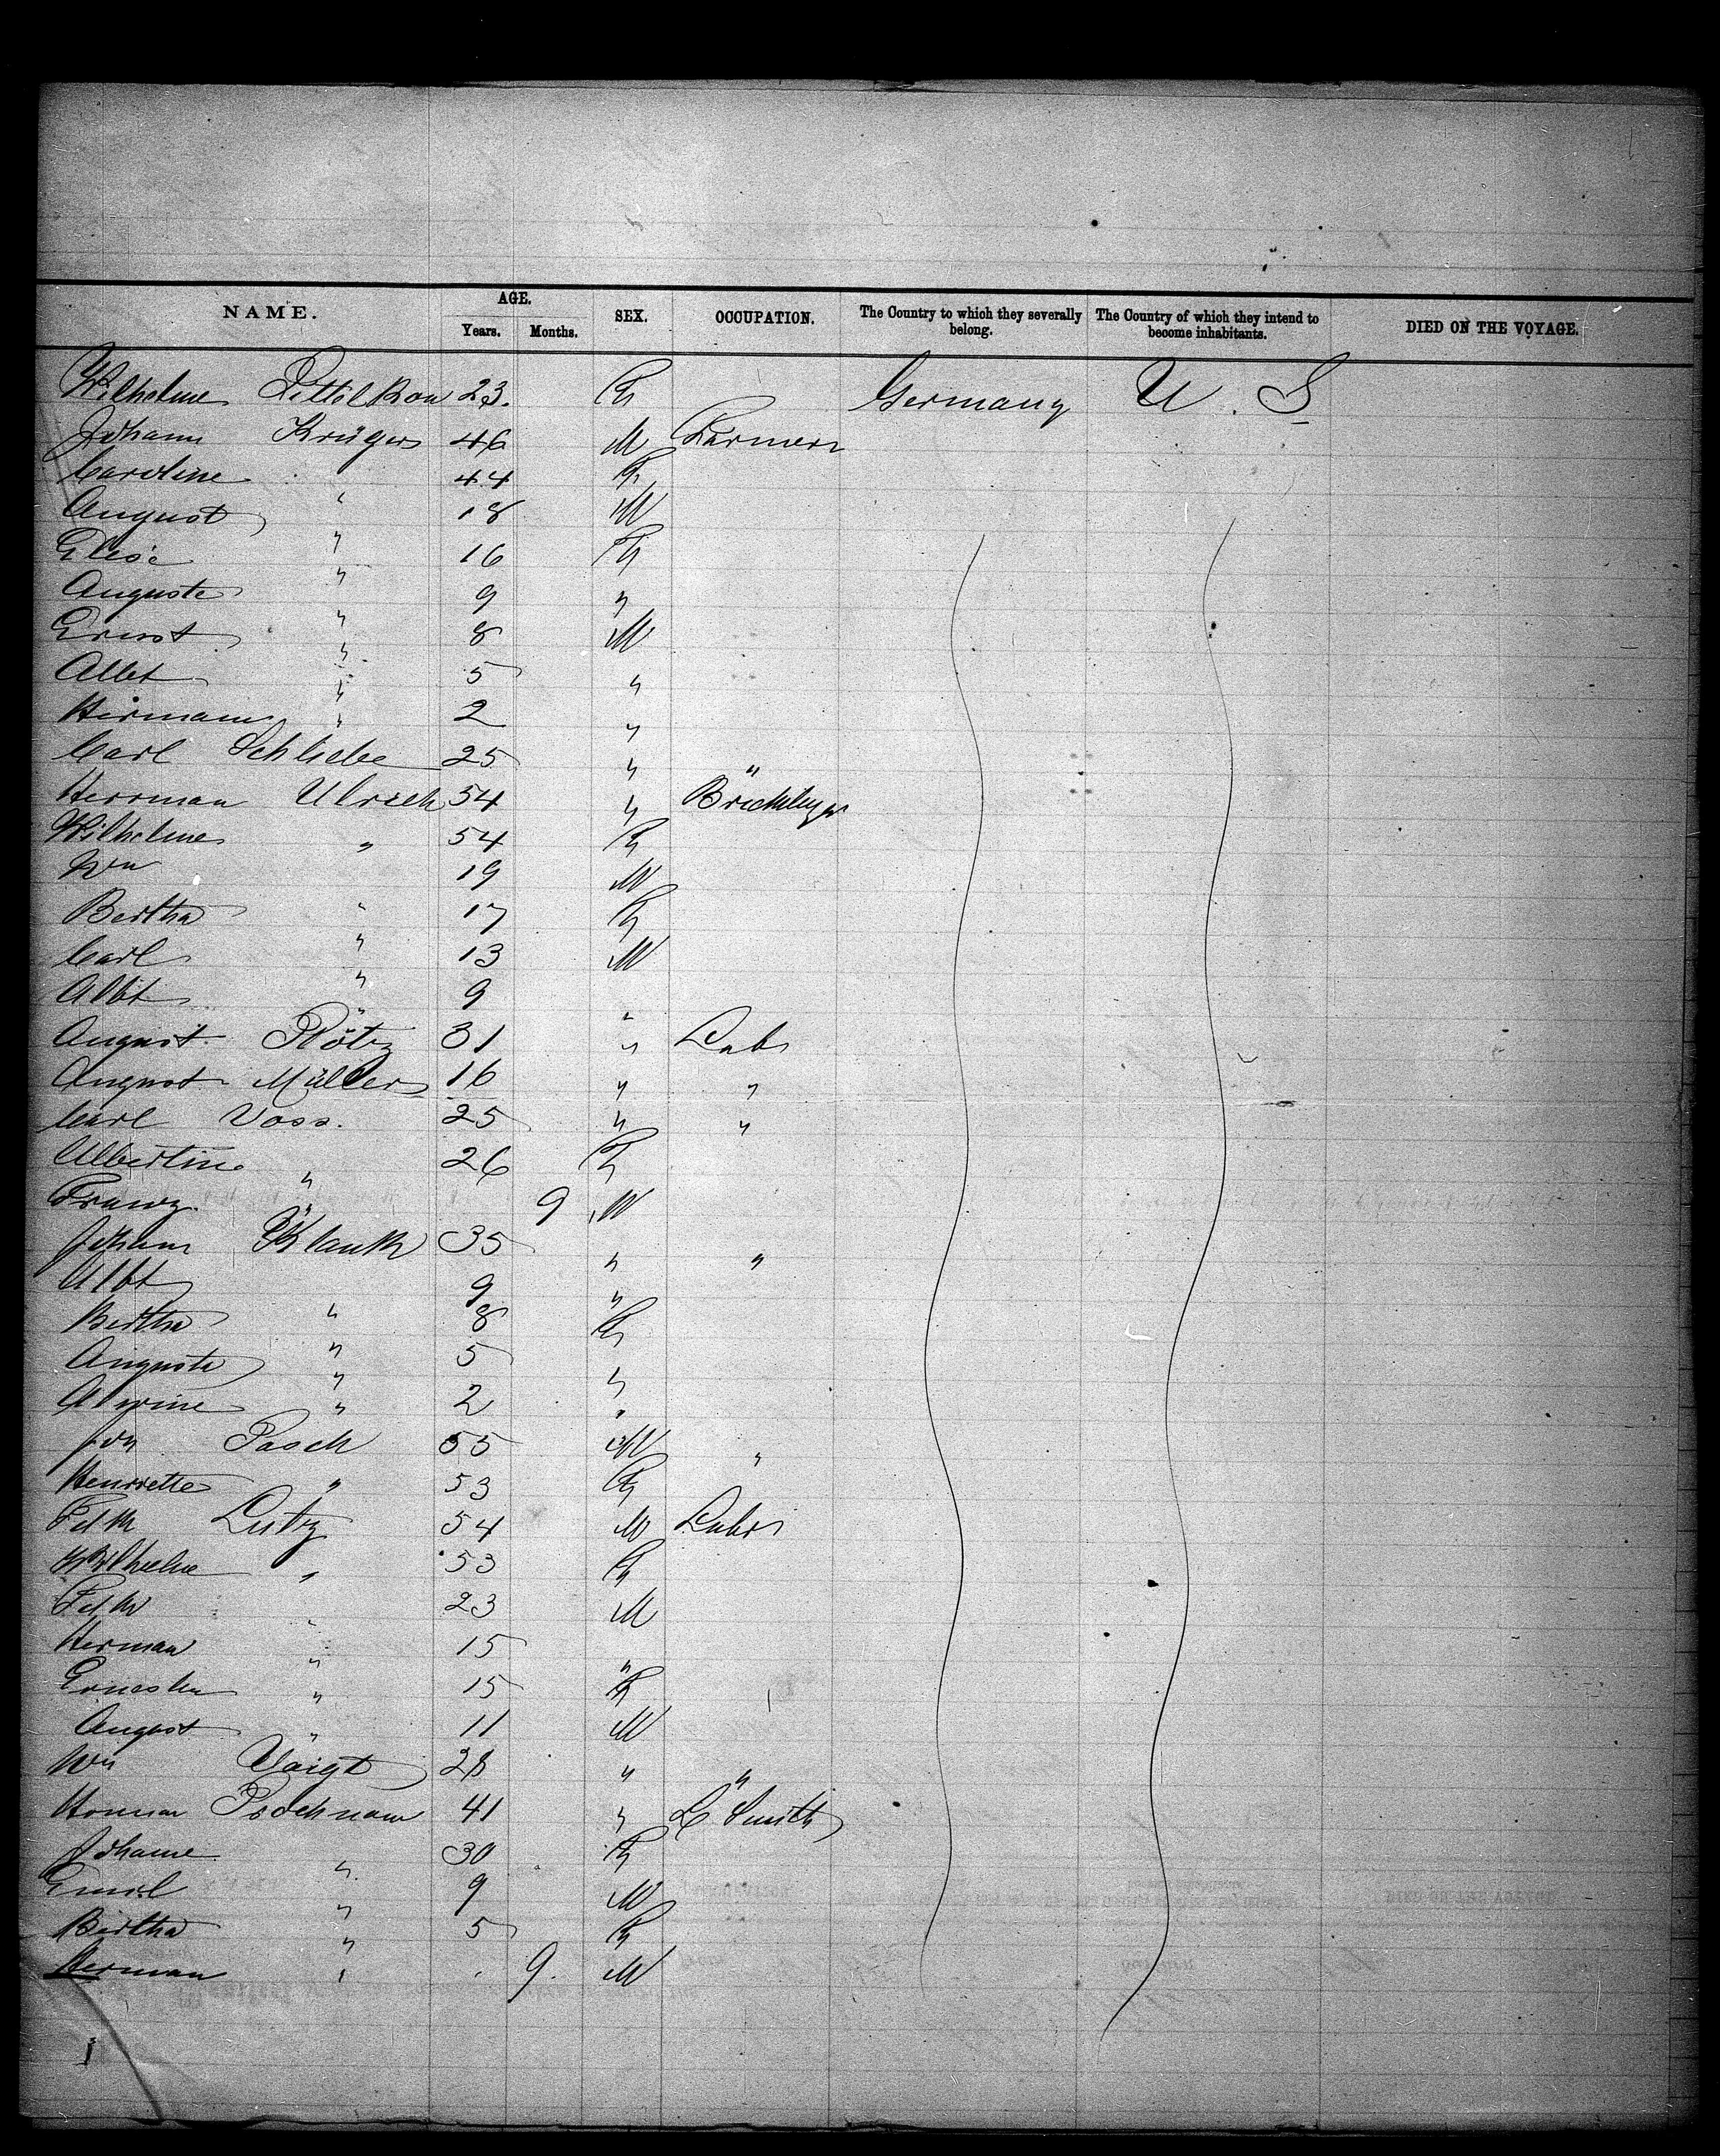 NAME. AGE. Years. Months. SEX. OCCUPATION. The Country to which they severally belong. The Country of which they intend to become inhabitants. DIED ON THE VOYAGE.
Wilhelmine 23. F Germany U. S
Johann Krüger 46 M Farmer
Caroline " 44 F
August " 18 M
Elise " 16 F
Auguste " 9 "
Ernst " 8 M
Albt " 5 "
Hermann " 2 "
Carl Schliebe 25 " "
Herrman Ulrich 54 " Bricklayer
Wilhelmine " 54 F
Wm " 19 M
Bertha " 17 F
Carl " 13 M
Albt " 9 "
August Plötz 31 " Labr
August Müller 16 " "
Carl Voss. 25 " "
Albertine " 26 F
Franz " 9 M
Johann Klauk 35 " "
Albt " 9 "
Bertha " 8 F
Auguste " 5 "
Alwine " 2 "
Joh Pasch 55 M "
Henriette " 53 F
Fdk Lutz 54 M Labr
Wilhelme " 53 F
Fdk " 23 M
Herman " 15 "
Ernestine " 15 F
August " 11 M
Wm Voigt 28 " "
Herman 41 " L Smith
Johanne " 30 F
Emil " 9 M
Bertha " 5 F
Herman " 9. M